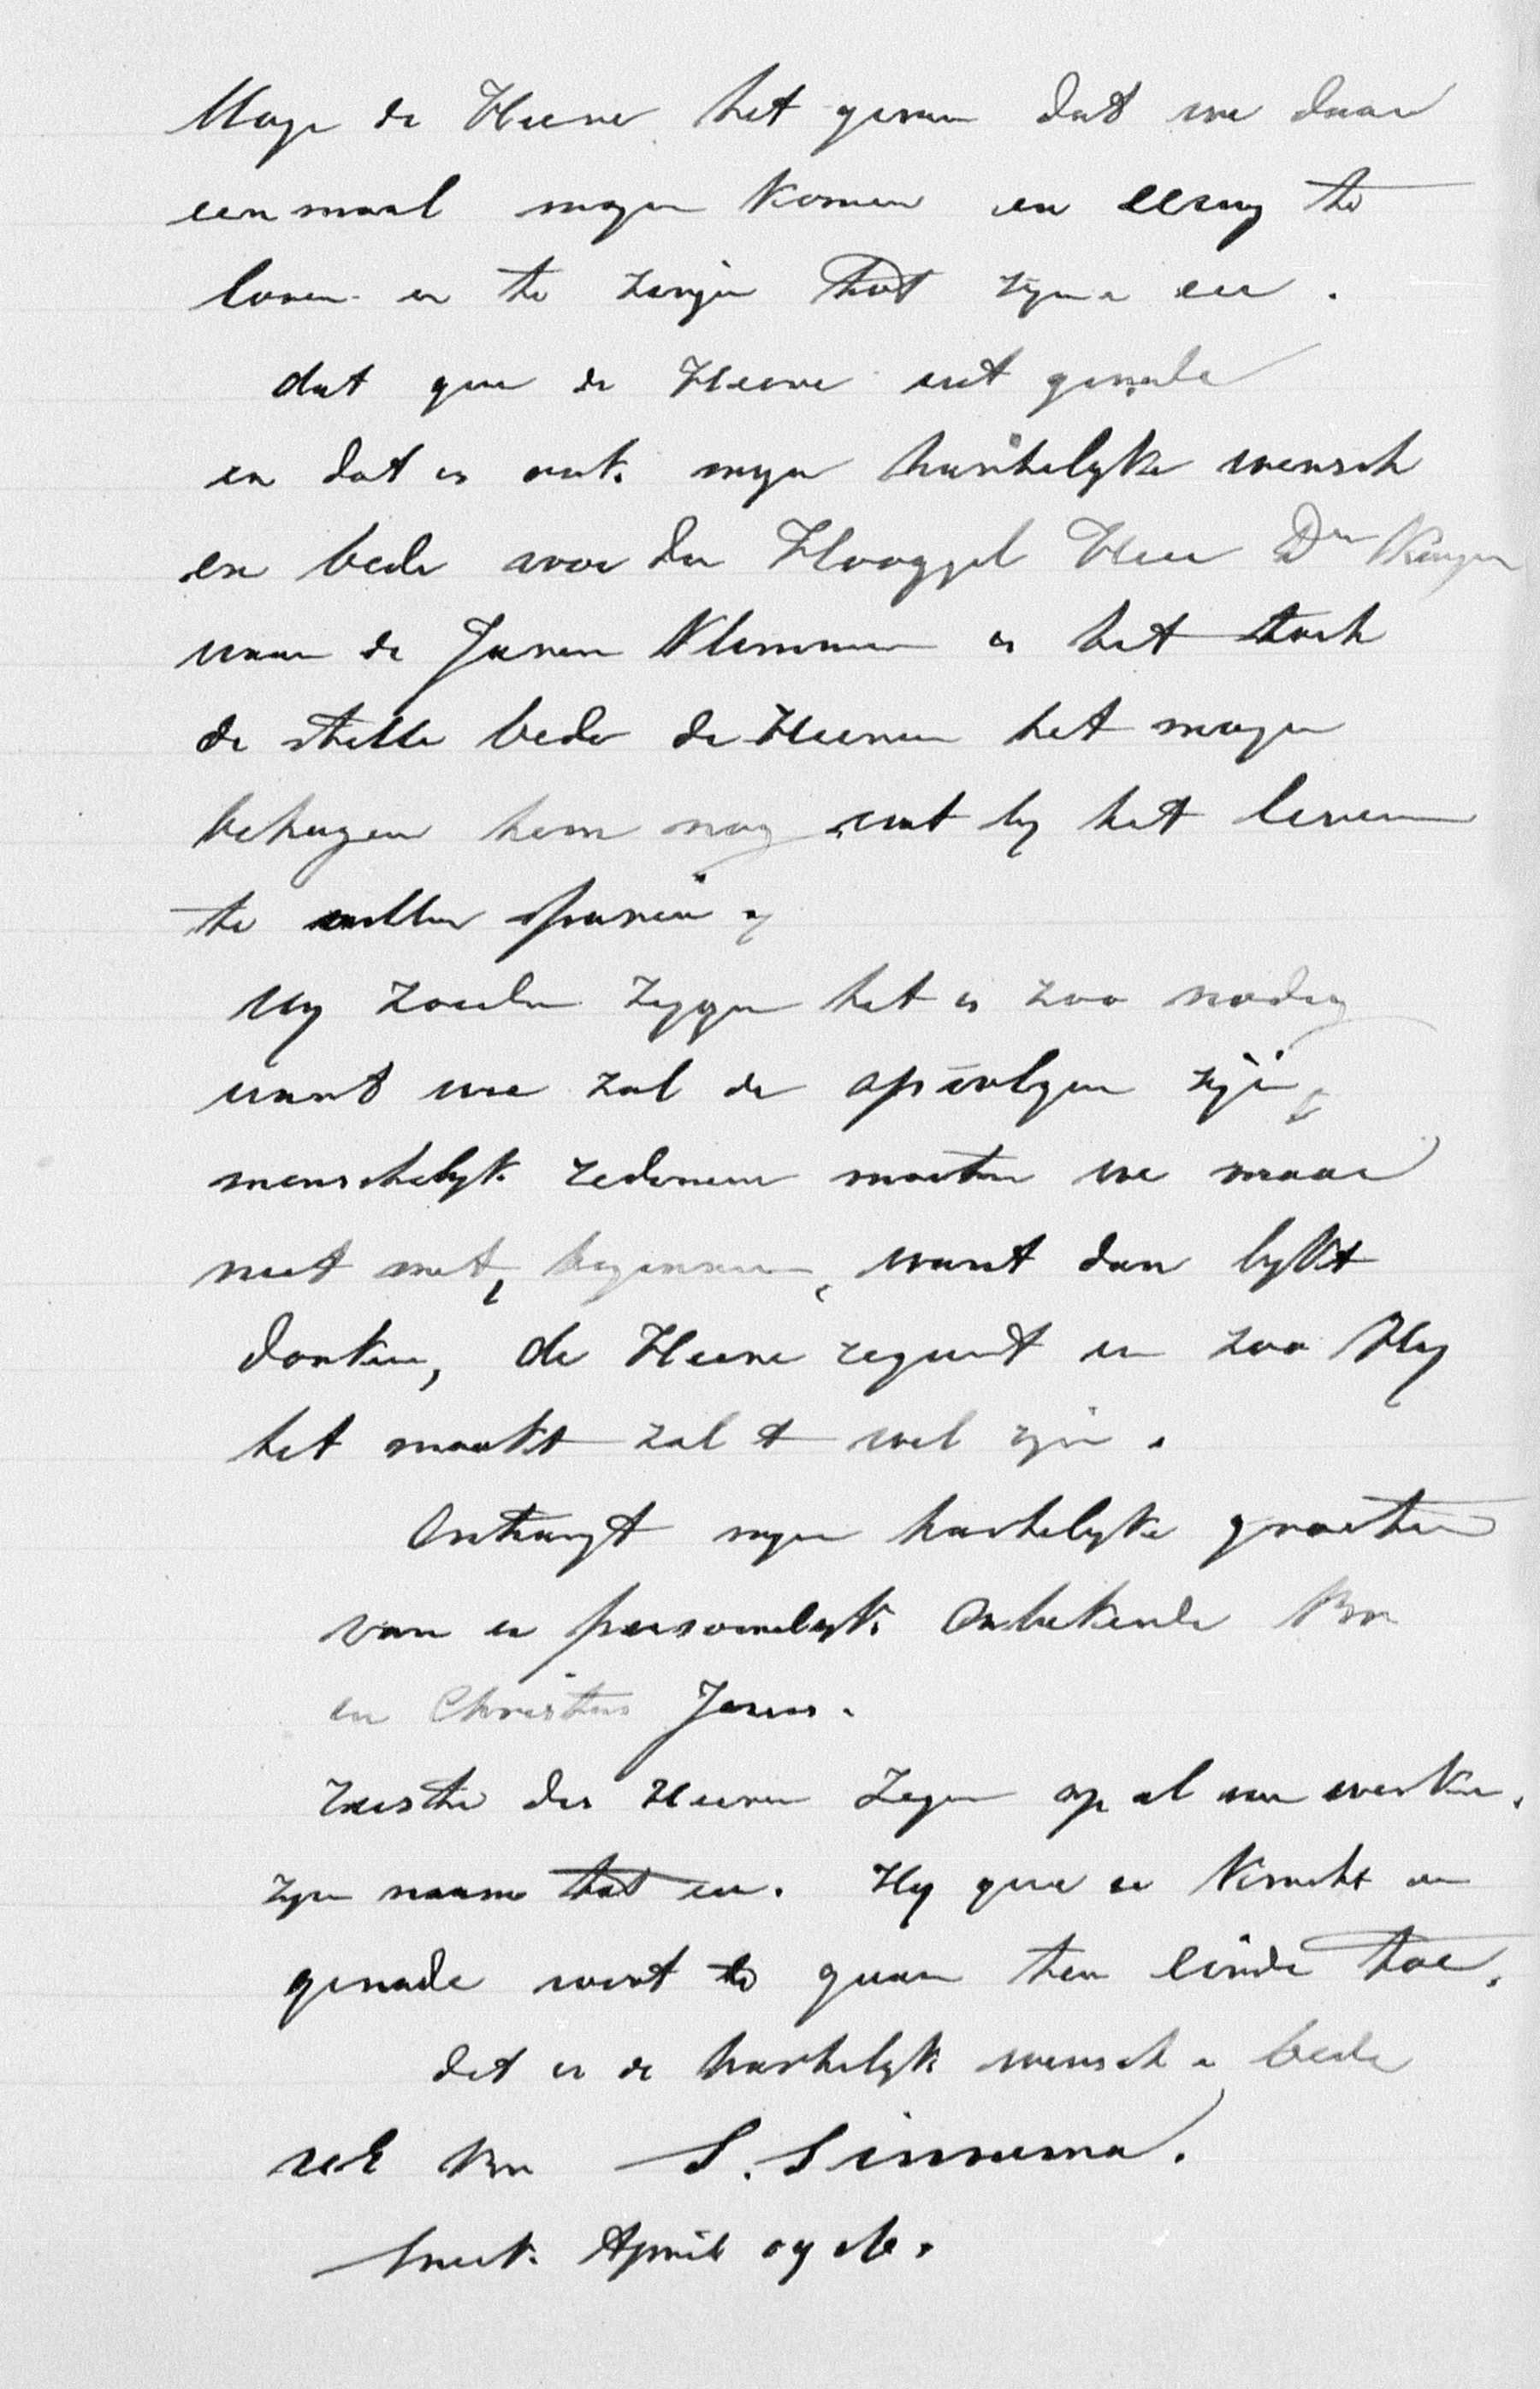 Moge de Heere het geven dat we daar
eenmaal mogen komen en eeuwig te
loven en te zingen tot zijne eer.
dat geve de Heere uit genade
en dat is ook mijn hartelyke wensch
en bede voor den Hooggel Heer Dr Kuyper
want de Jaren klimmen is het toch
de stille bede de Heeren het mogen
behagen hem nog wat by het leven
te willen sparen,
Wy zouden zeggen het is zoo nodig
want wie zal de opvolger zijn,
menschelyk redeneren moeten we maar
niet met, beginnen, want dan lykt
donker, de Heere regeert en zoo Hij
het maakt zal t wel zijn.
Ontvangt mijn hartelyke groeten
van u persoonelyk Onbekende Br
in Christus Jesus.
ruste des Heeren Zegen op al uw werken.
zijn naam tot eer. Hy geve u kracht en
genade voort te gaan ten einde toe.
dit is de hartelyk wensch e bede
UE Br S. Sinnema.
Sneek April